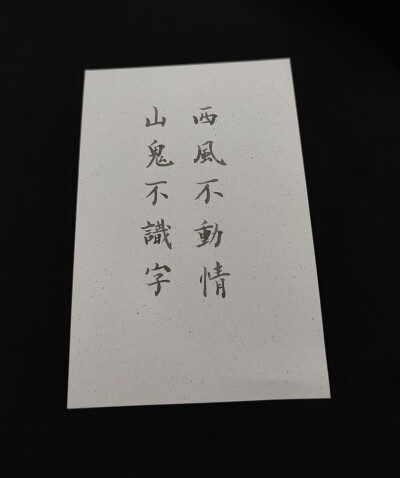 西風不動情
山鬼不識字